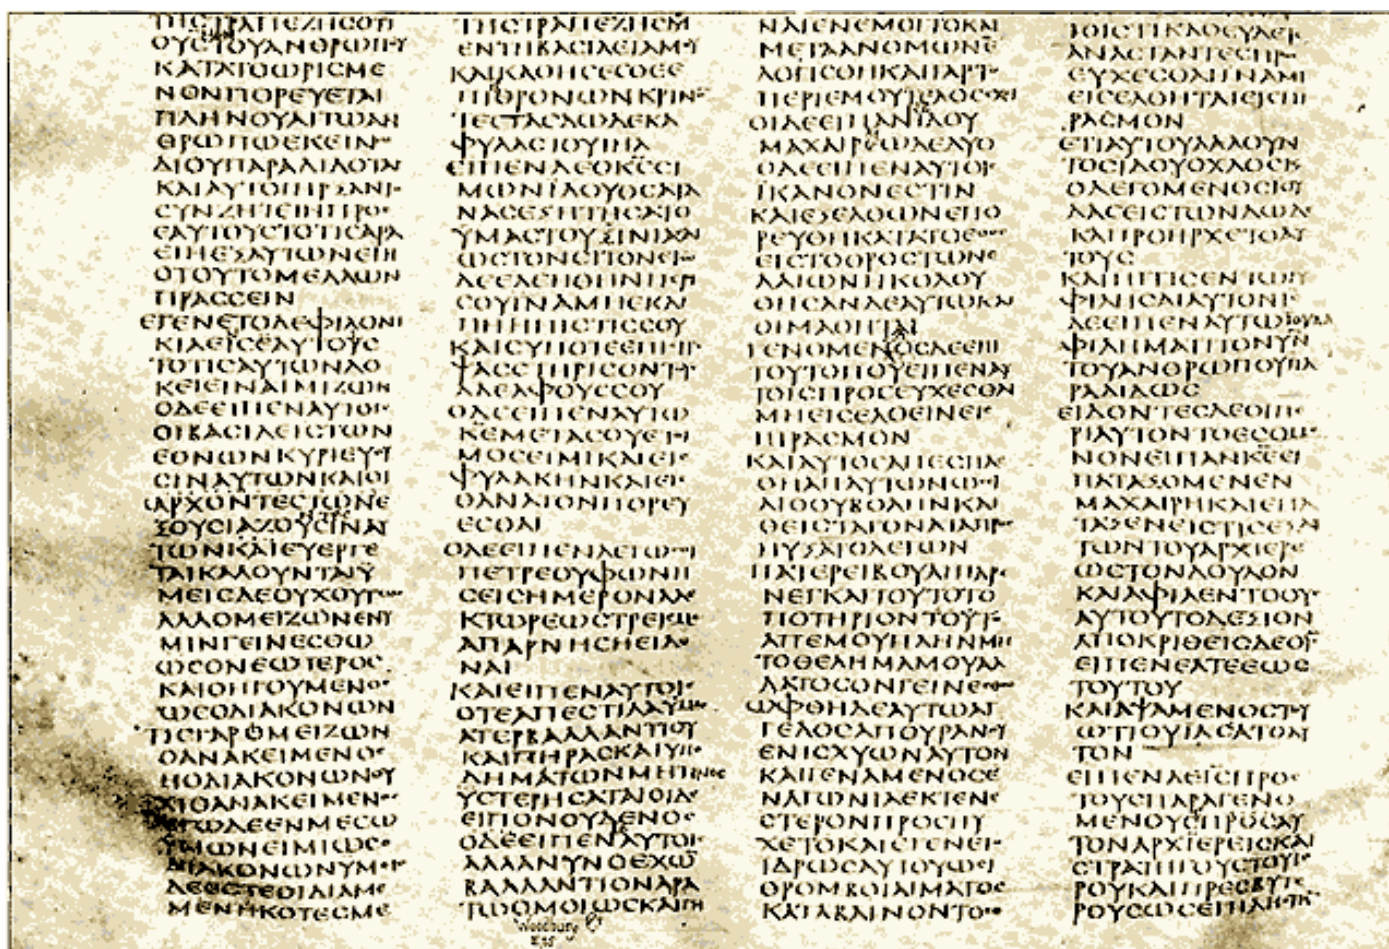 ΤΗϹΤΡΑΠΕΖΗϹΟΤΙ
ΚΑΤΑΤΟΩΡΙϹΜΕ
ΝΟΝΠΟΡΕΥΕΤΑΙ
ΠΛΗΝΟΥΑΙΤΩΑΝ
ΘΡΩΠΩΕΚΕΙΝΩ
ΔΙΟΥΠΑΡΑΔΙΔΟΤΑΙ
ΚΑΙΑΥΤΟΙΗΡΞΑΝΤΟ
ϹΥΝΖΗΤΕΙΝΠΡΟϹ
ΕΑΥΤΟΥϹΤΟΤΙϹΑΡΑ
ΕΙΗΕΞΑΥΤΩΝΕΠΙ
ΟΤΟΥΤΟΜΕΛΛΩΝ
ΠΡΑϹϹΕΙΝ
ΕΓΕΝΕΤΟΔΕΦΙΛΟΝΙ
ΚΙΑΕΙϹΕΑΥΤΟΥϹ
ΤΟΤΙϹΑΥΤΩΝΔΟ
ΚΕΙΕΙΝΑΙΜΙΖΩΝ
ΟΔΕΕΙΠΕΝΑΥΤΟΙϹ
ΟΙΒΑϹΙΛΕΙϹΤΩΝ
ΕΘΝΩΝΚΥΡΙΕΥΟΥ
ϹΙΝΑΥΤΩΝΚΑΙΟΙ
ΑΡΧΟΝΤΕϹΤΩΝΕ
ΞΟΥϹΙΑΖΟΥϹΙΝΑΥ
ΤΩΝΚΑΙΕΥΕΡΓΕ
ΤΑΙΚΑΛΟΥΝΤΑΙΫ
ΜΕΙϹΔΕΟΥΧΟΥΤΩϹ
ΑΛΛΟΜΕΙΖΩΝΕΝΫ
ΜΙΝΓΕΙΝΕϹΘΩ
ΩϹΟΝΕΩΤΕΡΟϹ
ΚΑΙΟΗΓΟΥΜΕΝΟϹ
ΩϹΟΔΙΑΚΟΝΩΝ
ΤΙϹΓΑΡΟΜΕΙΖΩΝ
ΟΑΝΑΚΕΙΜΕΝΟϹ
ΗΟΔΙΑΚΟΝΩΝΟΥ
ΧΙΟΑΝΑΚΕΙΜΕΝΟϹ
ΕΓΩΔΕΕΝΜΕϹΩ
ΥΜΩΝΕΙΜΙΩϹΟ
ΔΙΑΚΟΝΩΝΥΜΕΙϹ
ΔΕΕϹΤΕΟΙΔΙΑΜΕ
ΜΕΝΗΚΟΤΕϹΜΕ
ΤΗϹΤΡΑΠΕΖΗϹΜ
ΕΝΤΗΒΑϹΙΛΕΙΑΜΟΥ
ΚΑΙΚΑΘΗϹΕϹΘΕΕ
ΠΙΘΡΟΝΩΝΚΡΙΝΟ
ΤΕϹΤΑϹΔΩΔΕΚΑ
ΦΥΛΑϹΤΟΥΙΗΛ
ΕΙΠΕΝΔΕΟΚϹϹΙ
ΜΩΝΙΔΟΥΟϹΑΤΑ
ΝΑϹΕΞΗΤΗϹΑΤΟ
ΫΜΑϹΤΟΥϹΙΝΙΑϹΑΙ
ΩϹΤΟΝϹΙΤΟΝΕΓΩ
ΔΕΕΔΕΗΘΗΝΠΕΡΙ
ϹΟΥΙΝΑΜΗΕΚΛΙ
ΠΗΗΠΙϹΤΙϹϹΟΥ
ΚΑΙϹΥΠΟΤΕΕΠΙϹΤΡΕ
ΨΑϹϹΤΗΡΙϹΟΝΤΟΥϹ
ΑΔΕΛΦΟΥϹϹΟΥ
ΟΔΕΕΙΠΕΝΑΥΤΩ
ΚΕΜΕΤΑϹΟΥΕΤΟΙ
ΜΟϹΕΙΜΙΚΑΙΕΙϹ
ΦΥΛΑΚΗΝΚΑΙΕΙϹ
ΘΑΝΑΤΟΝΠΟΡΕΥ
ΕϹΘΑΙ
ΟΔΕΕΙΠΕΝΛΕΓΩϹΟΙ
ΠΕΤΡΕΟΥΦΩΝΗ
ϹΕΙϹΗΜΕΡΟΝΑΛΕ
ΚΤΩΡΕΩϹΤΡΕΙϹΜΕ
ΑΠΑΡΝΗϹΗΕΙΔΕ
ΝΑΙ
ΚΑΙΕΙΠΕΝΑΥΤΟΙϹ
ΟΤΕΑΠΕϹΤΙΛΑΫΜΑϹ
ΑΤΕΡΒΑΛΛΑΝΤΙΟΥ
ΚΑΙΠΗΡΑϹΚΑΙΥΠΟ
ΔΗΜΑΤΩΝΜΗΤΙΝΟϹ
ΥϹΤΕΡΗϹΑΤΑΙΟΙΔΕ
ΕΙΠΟΝΟΥΔΕΝΟϹ
ΟΔΕΕΙΠΕΝΑΥΤΟΙϹ
ΑΛΛΑΝΥΝΟΕΧΩ
ΒΑΛΛΑΝΤΙΟΝΑΡΑ
ΤΩΟΜΟΙΩϹΚΑΙΠΗ
ΝΑΙΕΝΕΜΟΙΤΟΚΑΙ
ΜΕΤΑΑΝΟΜΩΝΕ
ΛΟΓΙϹΘΗΚΑΙΓΑΡΤΟ
ΠΕΡΙΕΜΟΥΤΕΛΟϹΕΧΕΙ
ΟΙΔΕΕΙΠΑΝΙΔΟΥ
ΜΑΧΑΙΡΕΩΔΕΔΥΟ
ΟΔΕΕΙΠΕΝΑΥΤΟΙϹ
ΙΚΑΝΟΝΕϹΤΙΝ
ΚΑΙΕΞΕΛΘΩΝΕΠΟ
ΡΕΥΘΗΚΑΤΑΤΟΕΘΟϹ
ΕΙϹΤΟΟΡΟϹΤΩΝΕ
ΛΑΙΩΝΗΚΟΛΟΥ
ΘΗϹΑΝΔΕΑΥΤΩΚΑΙ
ΟΙΜΑΘΗΤΑΙ
ΓΕΝΟΜΕΝΟϹΔΕΕΠΙ
ΤΟΥΤΟΠΟΥΕΙΠΕΝΑΥ
ΤΟΙϹΠΡΟϹΕΥΧΕϹΘΑΙ
ΜΗΕΙϹΕΛΘΕΙΝΕΙϹ
ΠΙΡΑϹΜΟΝ
ΚΑΙΑΥΤΟϹΑΠΕϹΠΑ
ϹΘΗΑΠΑΥΤΩΝΩϹΙ
ΛΙΘΟΥΒΟΛΗΝΚΑΙ
ΘΕΙϹΤΑΓΟΝΑΤΑΠΡΟϹ
ΗΥΞΑΤΟΛΕΓΩΝ
ΠΑΤΕΡΕΙΒΟΥΛΕΙΠΑΡΕ
ΝΕΓΚΑΙΤΟΥΤΟΤΟ
ΠΟΤΗΡΙΟΝΤΟΥΤΟ
ΑΠΕΜΟΥΠΛΗΝΜΗ
ΤΟΘΕΛΗΜΑΜΟΥΑΛ
ΛΑΤΟϹΟΝΓΕΙΝΕϹΘΩ
ΩΦΘΗΔΕΑΥΤΩΑΓ
ΓΕΛΟϹΑΠΟΥΡΑΝΟΥ
ΕΝΙϹΧΥΩΝΑΥΤΟΝ
ΚΑΙΓΕΝΑΜΕΝΟϹΕ
ΝΑΓΩΝΙΑΕΚΤΕΝΕ
ϹΤΕΡΟΝΠΡΟϹΗΥ
ΧΕΤΟΚΑΙΕΓΕΝΕΤΟ
ΙΔΡΩϹΑΥΤΟΥΩϹΕΙ
ΘΡΟΜΒΟΙΑΙΜΑΤΟϹ
ΚΑΤΑΒΑΙΝΟΝΤΟϹ
ΤΟΙϹΤΙΚΑΘΕΥΔΕΤΕ
ΑΝΑϹΤΑΝΤΕϹΠΡΟϹ
ΕΥΧΕϹΘΑΙΙΝΑΜΗ
ΕΙϹΕΛΘΗΤΑΙΕΙϹΠΙ
ΡΑϹΜΟΝ
ΕΤΙΑΥΤΟΥΛΑΛΟΥΝ
ΤΟϹΙΔΟΥΟΧΛΟϹΚΑΙ
ΟΛΕΓΟΜΕΝΟϹΙΟΥ
ΔΑϹΕΙϹΤΩΝΔΩΔΕ
ΚΑΠΡΟΗΡΧΕΤΟΑΥ
ΤΟΥϹ
ΚΑΙΗΓΓΙϹΕΝΤΩΙΥ
ΦΙΛΗϹΑΙΑΥΤΟΝΙϹ
ΔΕΕΙΠΕΝΑΥΤΩΙΟΥΔΑ
ΦΙΛΗΜΑΤΙΤΟΝΥΝ
ΤΟΥΑΝΘΡΩΠΟΥΠΑ
ΡΑΔΙΔΩϹ
ΕΙΔΟΝΤΕϹΔΕΟΙΠΕ
ΡΙΑΥΤΟΝΤΟΕϹΟΜΕ
ΝΟΝΕΙΠΑΝΚΕΕΙ
ΠΑΤΑΞΟΜΕΝΕΝ
ΜΑΧΑΙΡΗΚΑΙΕΠΑ
ΤΑΞΕΝΕΙϹΤΙϹΕΞΑΥ
ΤΩΝΤΟΥΑΡΧΙΕΡΕ
ΩϹΤΟΝΔΟΥΛΟΝ
ΚΑΙΑΦΙΛΕΝΤΟΟΥϹ
ΑΥΤΟΥΤΟΔΕΞΙΟΝ
ΑΠΟΚΡΙΘΕΙϹΔΕΟΙϹ
ΕΙΠΕΝΕΑΤΕΕΩϹ
ΤΟΥΤΟΥ
ΚΑΙΑΨΑΜΕΝΟϹΤΟΥ
ΩΤΙΟΥΙΑϹΑΤΟΑΥ
ΤΟΝ
ΕΙΠΕΝΔΕΙϹΠΡΟϹ
ΤΟΥϹΠΑΡΑΓΕΝΟ
ΜΕΝΟΥϹΠΡΟϹΑΥ
ΤΟΝΑΡΧΙΕΡΕΙϹΚΑΙ
ϹΤΡΑΤΗΓΟΥϹΤΟΥΙΕ
ΡΟΥΚΑΙΠΡΕϹΒΥΤΕ
ΡΟΥϹΩϹΕΠΙΛΗϹΤΗ